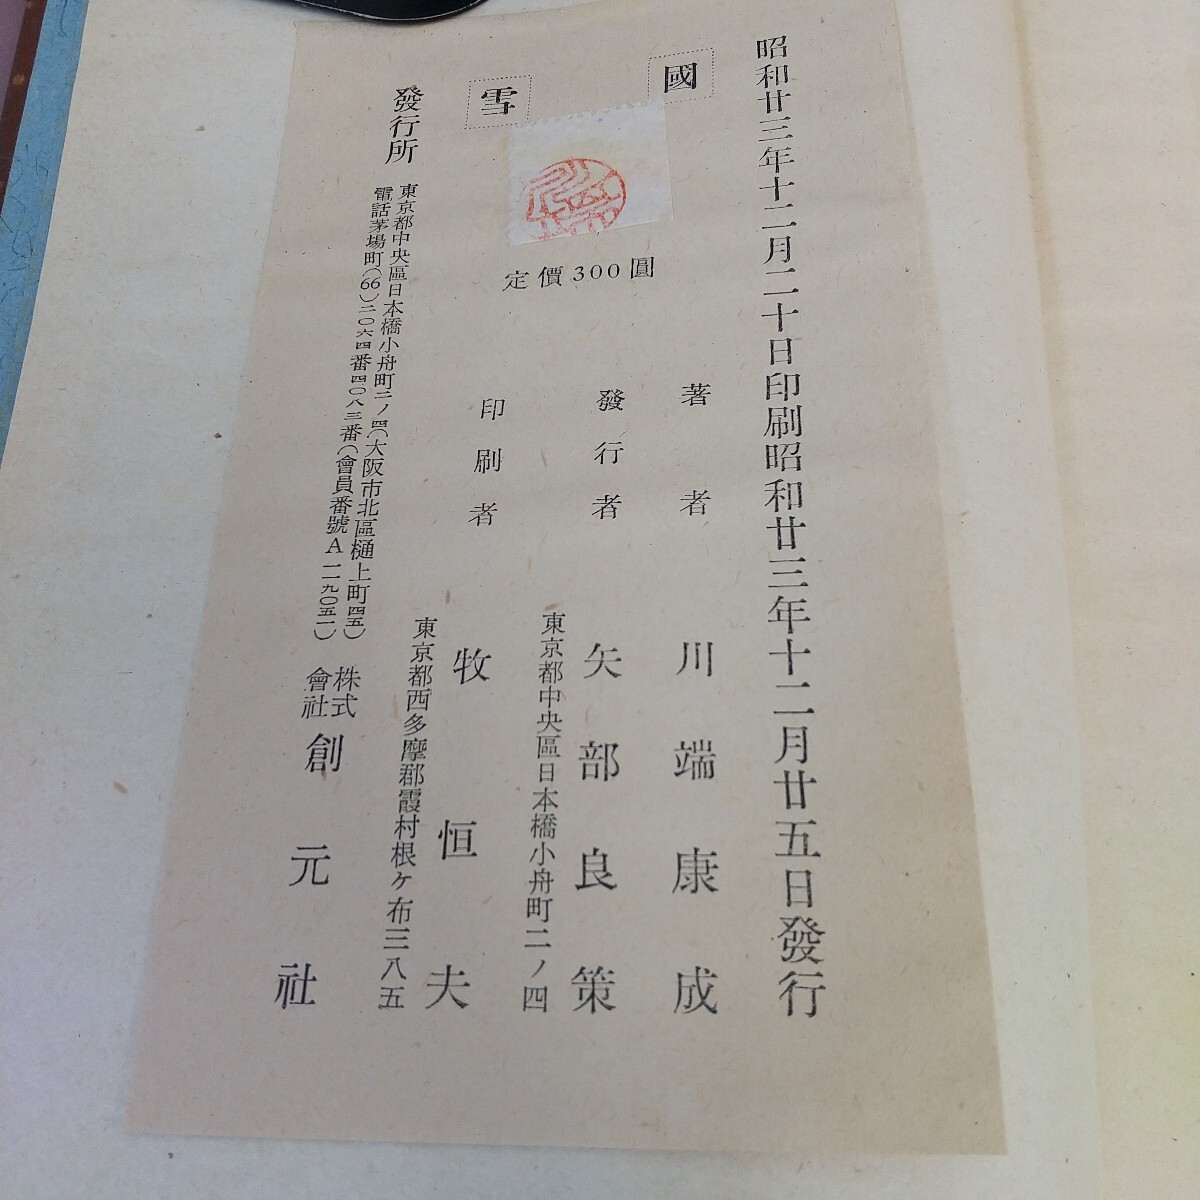 昭和廿三年十二月二十日印刷昭和廿三年十二月廿五日發行
雪國
定價300圓
著者 川端康成
發行者 矢部良策
東京都中央區日本橋小舟町二ノ四
印刷者 牧恒夫
東京都西多摩郡霞村根ケ布三八五
發行所
東京都中央區日本橋小舟町二ノ四(大阪市北區樋上町四五)
電話茅場町(66)二〇六四番四〇八三番(會員番號A一一九〇五一)
株式會社創元社